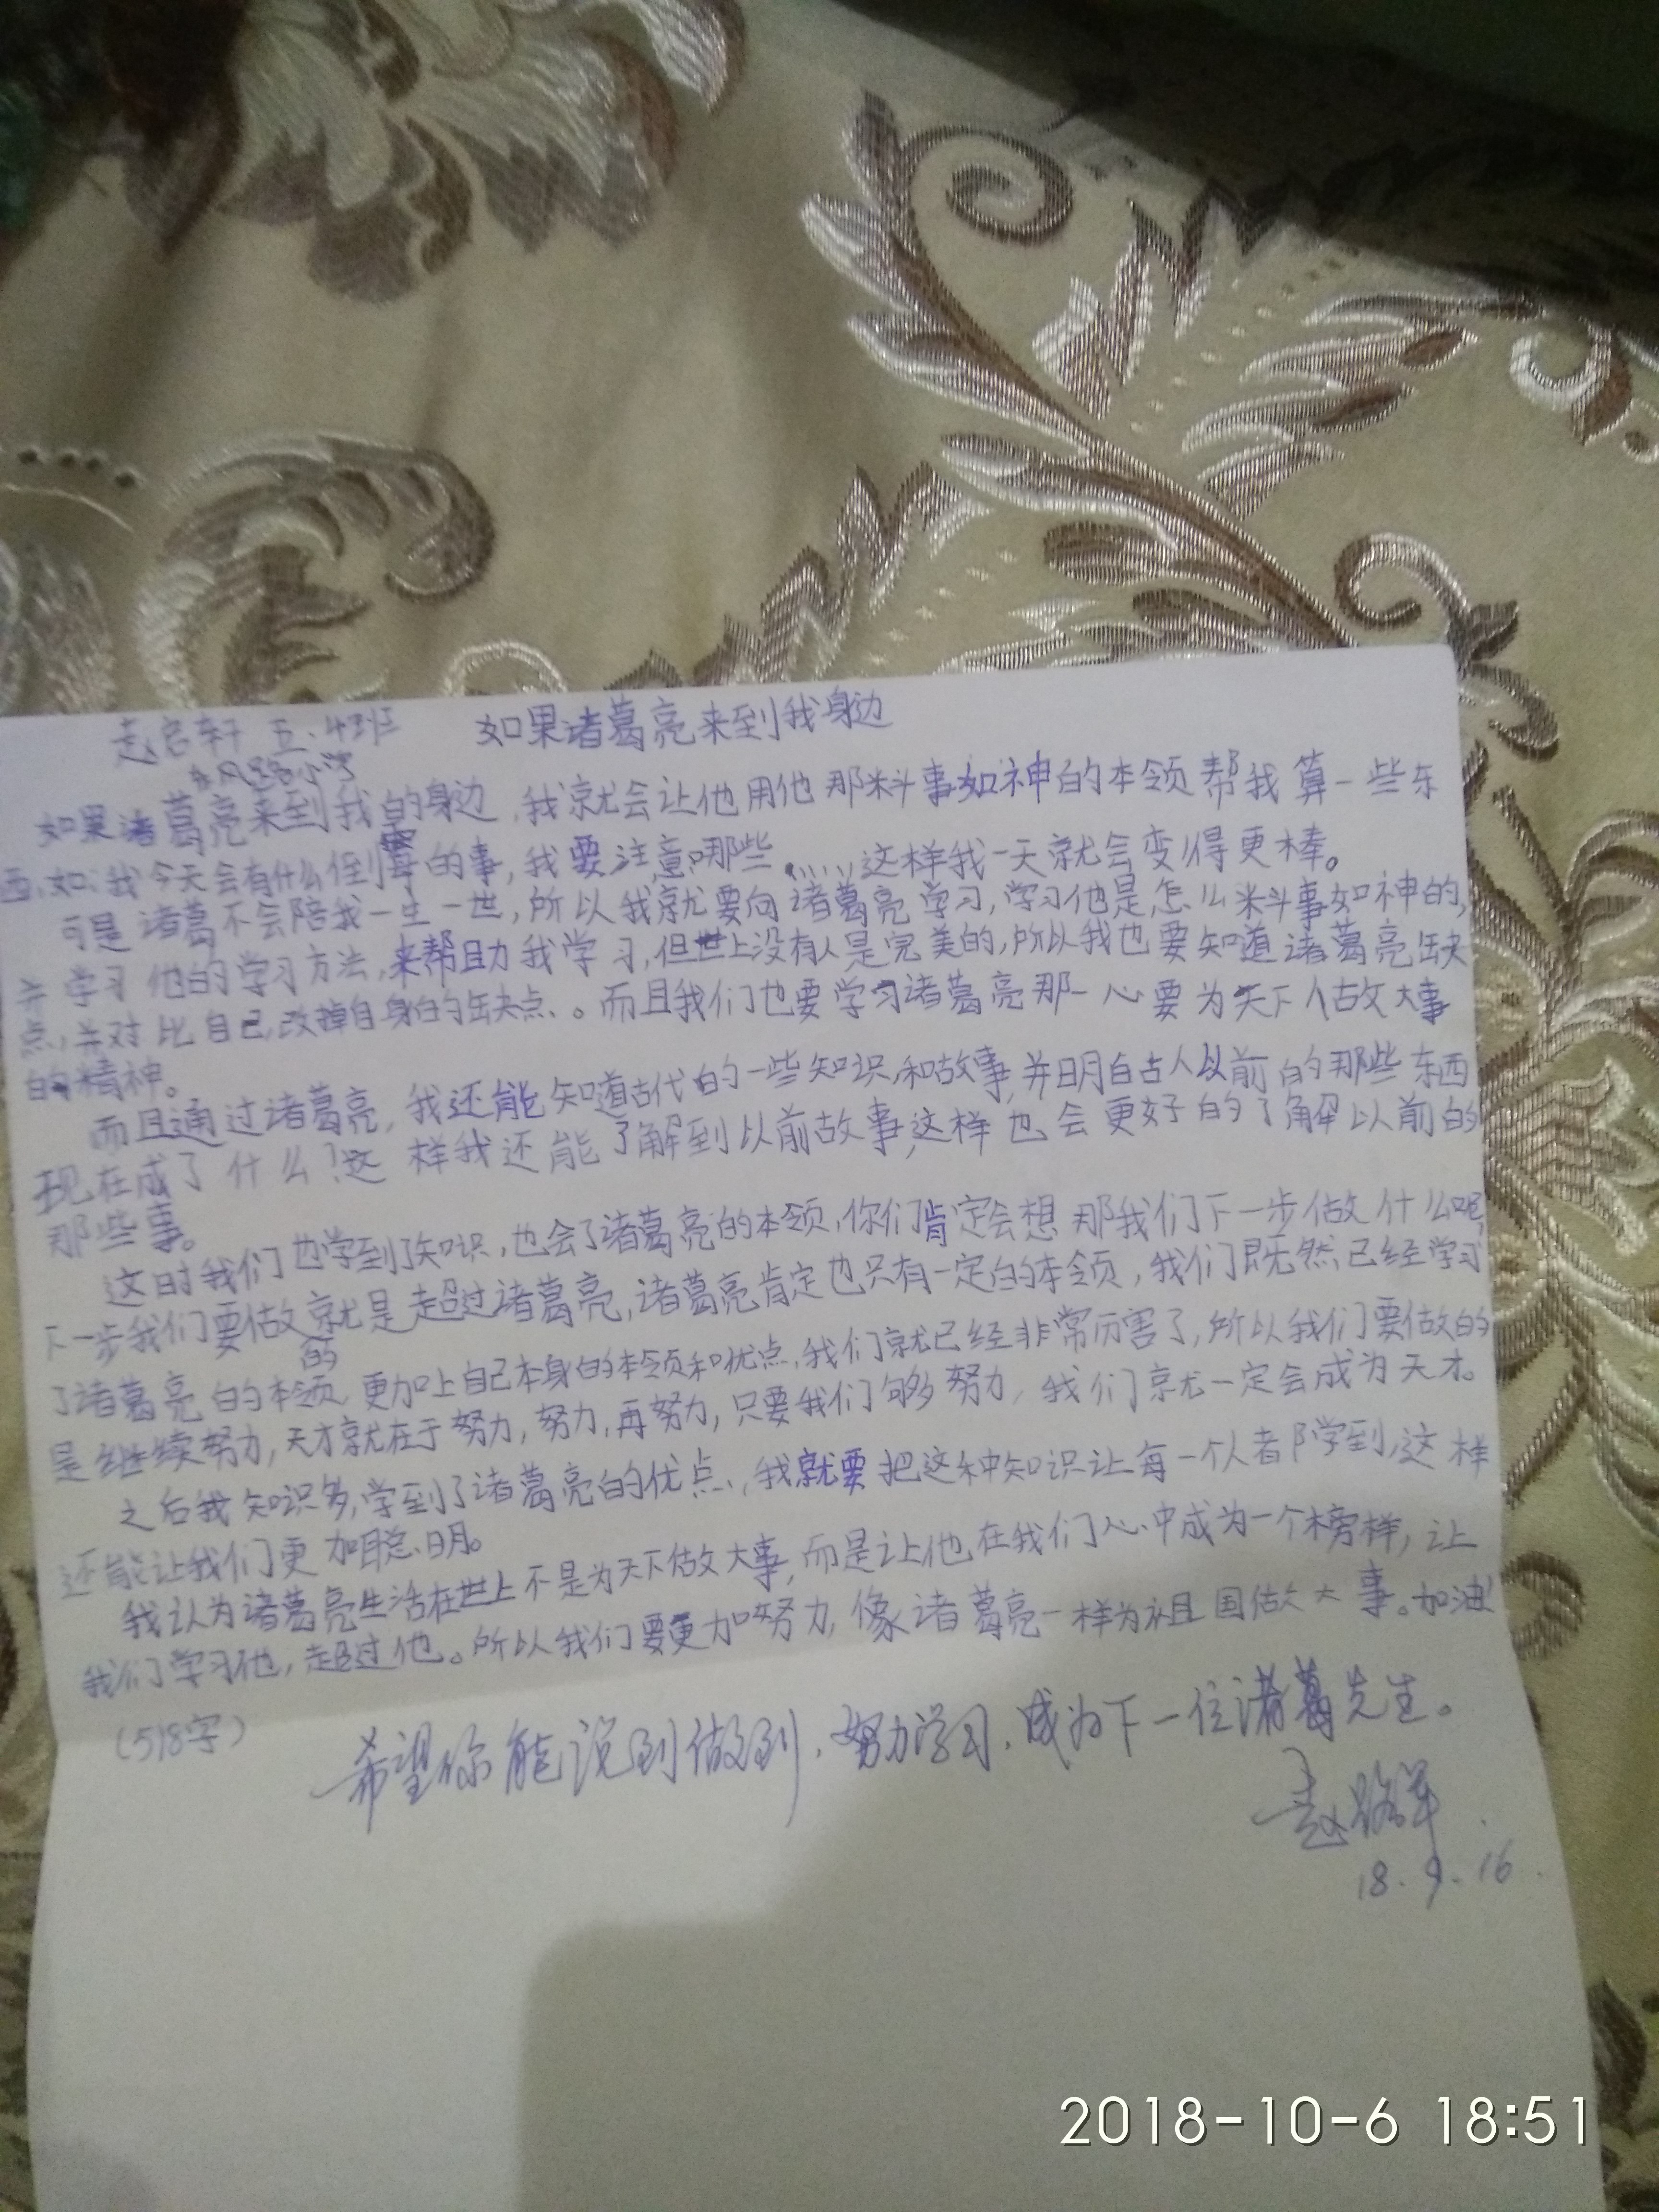 赵启轩 五.4班 如果诸葛亮来到我身边
东风路小学
如果诸葛亮来到我的身边,我就会让他用他那料事如神的本领帮我算一些东
西,如:我今天会有什么倒霉的事,我要注意哪些……这样我一天就会变得更棒。
可是诸葛不会陪我一生一世,所以我就要向诸葛亮学习,学习他是怎么料事如神的,
并学习他的学习方法,来帮助我学习,但世上没有人是完美的,所以我也要知道诸葛亮缺
点,并对比自己,改掉自身的缺点。而且我们也要学习诸葛亮那一心要为天下人做大事
的精神。
而且通过诸葛亮,我还能知道古代的一些知识,和故事,并明白古人以前的那些东西
现在成了什么?这样我还能了解到以前故事,这样也会更好的了解以前的
那些事。
这时我们也学到了知识,也会了诸葛亮的本领,你们肯定会想那我们下一步做什么呢,
下一步我们要做的就是超过诸葛亮,诸葛亮肯定也只有一定的本领,我们既然已经学习
了诸葛亮的本领,更加上自己本身的本领和优点,我们就已经非常厉害了,所以我们要做的
是继续努力,天才就在于努力,努力,再努力,只要我们够努力,我们就一定会成为天才。
之后我知识多,学到了诸葛亮的优点,我就要把这种知识让每一个人者都学到,这样
还能让我们更加聪明。
我认为诸葛亮生活在世上不是为天下做大事,而是让他在我们心中成为一个榜样,让
我们学习他,超过他。所以我们要更加努力,像诸葛亮一样为祖国做大事。加油!
(518字)
希望你能说到做到,努力学习,成为下一位诸葛先生。
18.9.16.
2018-10-6 18:51